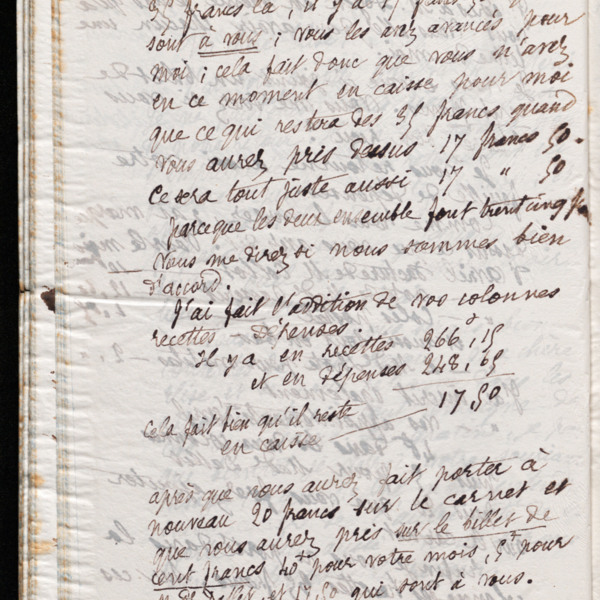 35 francs là, il y a 17
sont à vous ; vous les avez avancés pour
moi ; cela fait donc que vous n'avez
en ce moment en caisse pour moi
que ce qui restera des 35 francs quand
vous aurez pris dessus 17 francs 50.
Ce sera tout juste aussi 17 " 50
parceque les deux ensemble font trent cinq
Vous me direz si nous sommes bien
d'accord.
J'ai fait l'addition de vos colonnes
recettes - dépenses.
Il y a en recettes 266,15
et en dépenses 248,65
17,50
cela fait bien qu'il reste
en caisse
après que vous aurez fait porter à
nouveau 20 francs sur le carnet et
que vous aurez pris sur le billet de
cent francs 40 f pour votre mois, 5 f pour
et 17,50 qui sont à vous.